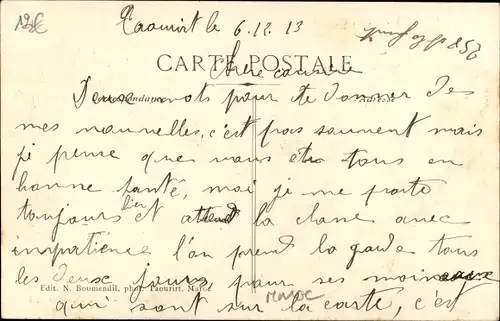 Taourirt le 6.12.13
CARTE POSTALE
Chère cousine
Correspondance
Deux mots pour te donner des
mes nouvelles, c'est pas souvent mais
je pense que vous etes tous en
bonne santé, moi je me porte
toujours bien et attend la classe avec
impatience l'on prend la garde tous
les deux jours pour ses moineaux
Edit. N. Boumendil, phot. Taourirt, Maroc
MAROC
qui sont sur la carte, c'est